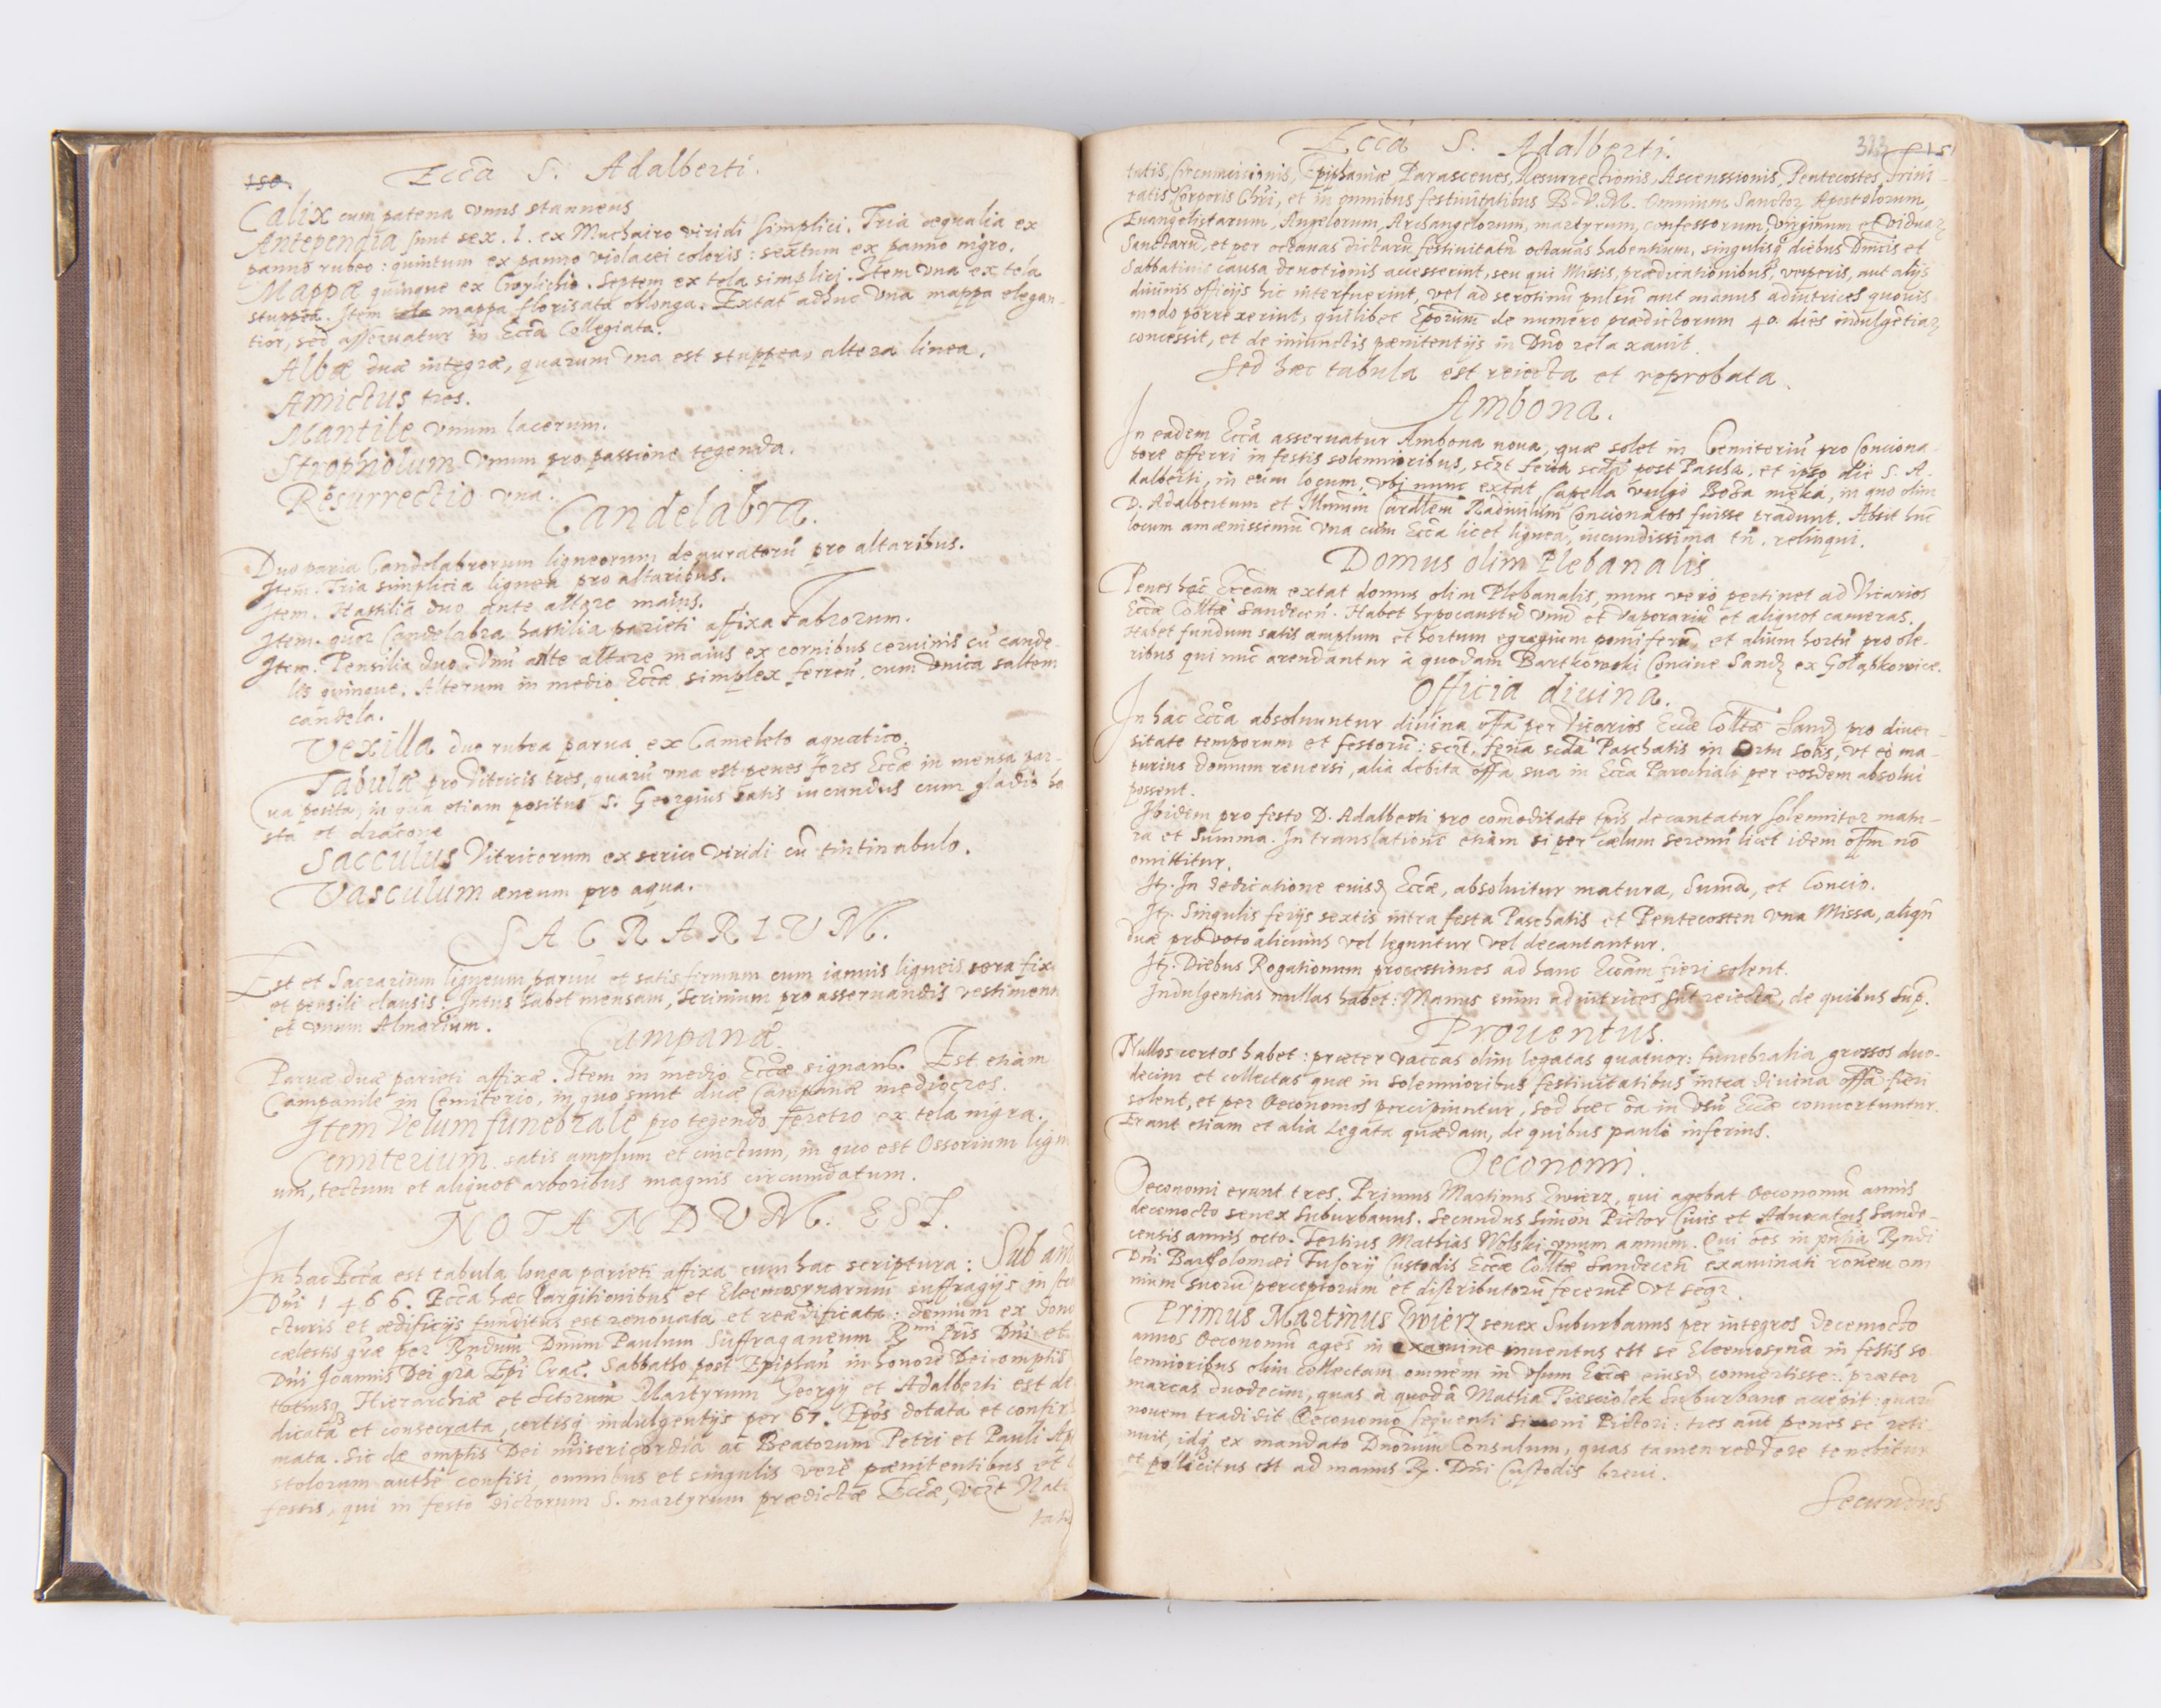 150.
Eccã S. Adalberti.
Calix cum patena vnus stanneus
Antependia sunt sex. 1. ex Muchairo viridi simplici. Tria æqualia ex
panno rubeo: quintum ex panno violacei coloris: sextum ex panno nigro.
Mappæ quinque ex . Septem ex tela simplici. Item vna ex tela
stuppea. Item mappa florisata oblonga. Extat adhuc vna mappa elegan-
tior, sed asseruatur in Eccã Collegiata.
Albæ duæ integræ, quarum vna est stuppea, altera linea.
Amictus tres.
Mantile vnum lacerum.
Stropholum vnum pro passione tegenda.
Resurrectio vna.
Candelabra.
Duo paria Candelabrorum ligneorum deauratorũ pro altaribus.
Item. Tria simplicia lignea pro altaribus.
Item. Hastilia duo ante altare maius.
Item. quor Candelabra hastilia parieti affixa Fabrorum.
Item. Pensilia duo. Vnũ ante altare maius ex cornibus ceruinis cũ cande-
lis quinque. Alterum in medio Eccæ simplex ferreũ, cum vnica saltem
candela.
Vexilla duo rubea parua ex Cameleto aquatico.
Tabulæ pro Vitricis tres, quarũ vna est penes fores Eccæ in mensa par-
ua posita, in qua etiam positus S. Georgius satis iucundus cum gladio ha-
sta et dracone
Sacculus Vitricorum ex serico viridi cũ tintinabulo.
Vasculum æneum pro aqua.
SACRARIVM.
Est et Sacrarium ligneum paruũ et satis firmum cum ianuis ligneis sera fixa
et pensili clausis. Intus habet mensam, Scrinium pro asseruandis vestiment
et vnum Almarium.
Campanæ.
Paruæ duæ parieti affixæ. Item in medio Eccæ signans. Est etiam
Campanile in Cemiterio, in quo sunt duæ Campanæ mediocres.
Item Velum funebrale pro tegendo feretro ex tela nigra.
Cemiterium satis amplum et cinctum, in quo est Ossorium lign
um, tectum et aliquot arboribus magnis circumdatum.
NOTANDVM. EST.
In hac Eccã est tabula longa parieti affixa cum hac scriptura: Sub an
Dñi 1466. Eccã hæc largitionibus et Eleemosynarum suffragijs in
cturis et ædificijs funditus est renouata et reædificata: demum ex dono
cælestis grã per Rndum Dnum Paulum Suffraganeum Rmi Pris Dni et
Dñi Joannis Dei grã Epi Crac. Sabbatho post Epiphañ in honorẽ Dei omptis
totiusq Hierarchiæ et Sctorum Martyrum Georgij et Adalberti est de
dicata et consecrata, certisq indulgentijs per 67. Epõs dotata et confir
mata. Sic de omptis Dei misericordia ac Beatorum Petri et Pauli Ap
stolorum authẽ confisi, omnibus et singulis verè pænitentibus et
festis, qui in festo dictorum S. martyrum prædictæ Eccæ, vict Nati
tati
Eccã S. Adalberti.
323
151
tatis, Circumcisionis, Epiphaniæ Parasceues, Resurrectionis, Ascenssionis, Pentecostes, Trini-
tatis, Corporis Chri, et in omnibus festiuitatibus B.V.M. Omnium Sanctor Apostolorum,
Euangelistarum, Angelorum, Archangelorum, martyrum, confessorum, Virginum et Viduar
Sanctarũ, et per octauas dictarũ festiuitatũ octauas habentium, singulisq diebus Dnicis et
Sabbatinis causa deuotionis accesserint, seu qui Missis, prædicationibus, vesperis, aut alijs
diuinis officijs hic interfuerint, vel ad serotinũ pulsũ aut manus adiutrices quouis
modo porrexerint, quilibet Eporum de numero prædictorum 40 dies indulgẽtiar
concessit, et de iniunctis pænitentijs in Dño relaxauit.
Sed hæc tabula est reiecta et reprobata.
Ambona.
In eadem Eccã asseruatur Ambona noua, quæ solet in Cemiteriũ pro Conciona-
tore offerri in festis solemnioribus, sczt feria scdã post Pascha, et ipso die S. A-
dalberti, in eum locum, vbi nunc extat Capella vulgò Boża męka, in quo olim
D. Adalbertum et Illmum Cardlem Radiuilum Concionatos fuisse tradunt. Absit huc
locum amænissimũ vna cum Eccã licet lignea, iucundissima tñ, relinqui.
Domus olim Plebanalis
Penes hãc Eccam extat domus olim Plebanalis, nunc verò pertinet ad Vicarios
Eccæ Colltæ Sandeceñ. Habet hypocaustũ vnũ et vaporariũ et aliquot cameras.
Habet fundum satis amplum et hortum egregium pomiferũ, et alium hortũ pro ole-
ribus qui nũc arendantur à quodam Bartkowski Conciue Sand ex Gołąbkowice.
Officia diuina.
In hac Eccã absoluuntur diuina offã per Vicarios Eccæ Colltæ Sand pro diuer-
sitate temporum et festorũ: sczt, feria scdã Paschatis in Ortu solis, vt eò ma-
turius domum reuersi, alia debita offã sua in Eccã Parochiali per eosdem absolui
possent.
Ibidem pro festo D. Adalberti pro comoditate tpis decantatur solemniter matu-
ra et Summa. In translatione etiam si per cælum serenũ licet idem offm nõ
omittitur.
It. In dedicatione eiusd Eccæ, absoluitur matura, Sumã, et Concio.
It. Singulis ferijs sextis intra festa Paschatis et Pentecosten vna Missa, aliqñ
duæ pro voto alicuius vel leguntur vel decantantur.
It. Diebus Rogationum processiones ad hanc Eccam fieri solent.
Indulgentias nullas habet: Manus enim adiutrices sũt reiectæ, de quibus sup.
Prouentus.
Nullos certos habet: præter vaccas olim legatas quatuor: funebralia grossos duo-
decim et collectas quæ in solemnioribus festiuitatibus intra diuina offã fieri
solent, et per Oeconomos percipiuntur, sed hæc oã in vsũ Eccæ conuertuntur.
Erant etiam et alia Legata quædam, de quibus paulò inferius.
Oeconomi.
Oeconomi erant tres. Primus Martinus Zwierz, qui agebat Oeconomũ annis
decemocto senex suburbanus. Secundus Simon Pictor Ciuis et Aduocatus Sande-
censis annis octo. Tertius Mathias Wolski vnum annum. Qui oẽs in pntia Rndi
Dñi Bartholomei Fusorij Custodis Eccæ Colltæ Sandeceñ examinati rõnem om
nium suorũ perceptorum et distributorũ fecerũt vt seqr.
Primus Martinus Zwierz senex Suburbanus per integros decemocto
annos Oeconomũ agẽs in examine inuentus est se Eleemosynã in festis so
lemnioribus olim collectam omnem in vsum Eccæ eiusd conuertisse: præter
marcas duodecim, quas à quodã Mathia Piesciolek Suburbano accepit: quarũ
nouem tradidit Oeconomo sequenti Simoni Pictori: tres aũt penes se reti
nuit, idq ex mandato Dnorum Consulum, quas tamen reddere tenebitur
et pollicitus est ad manus R. Dñi Custodis breui.
Secundus